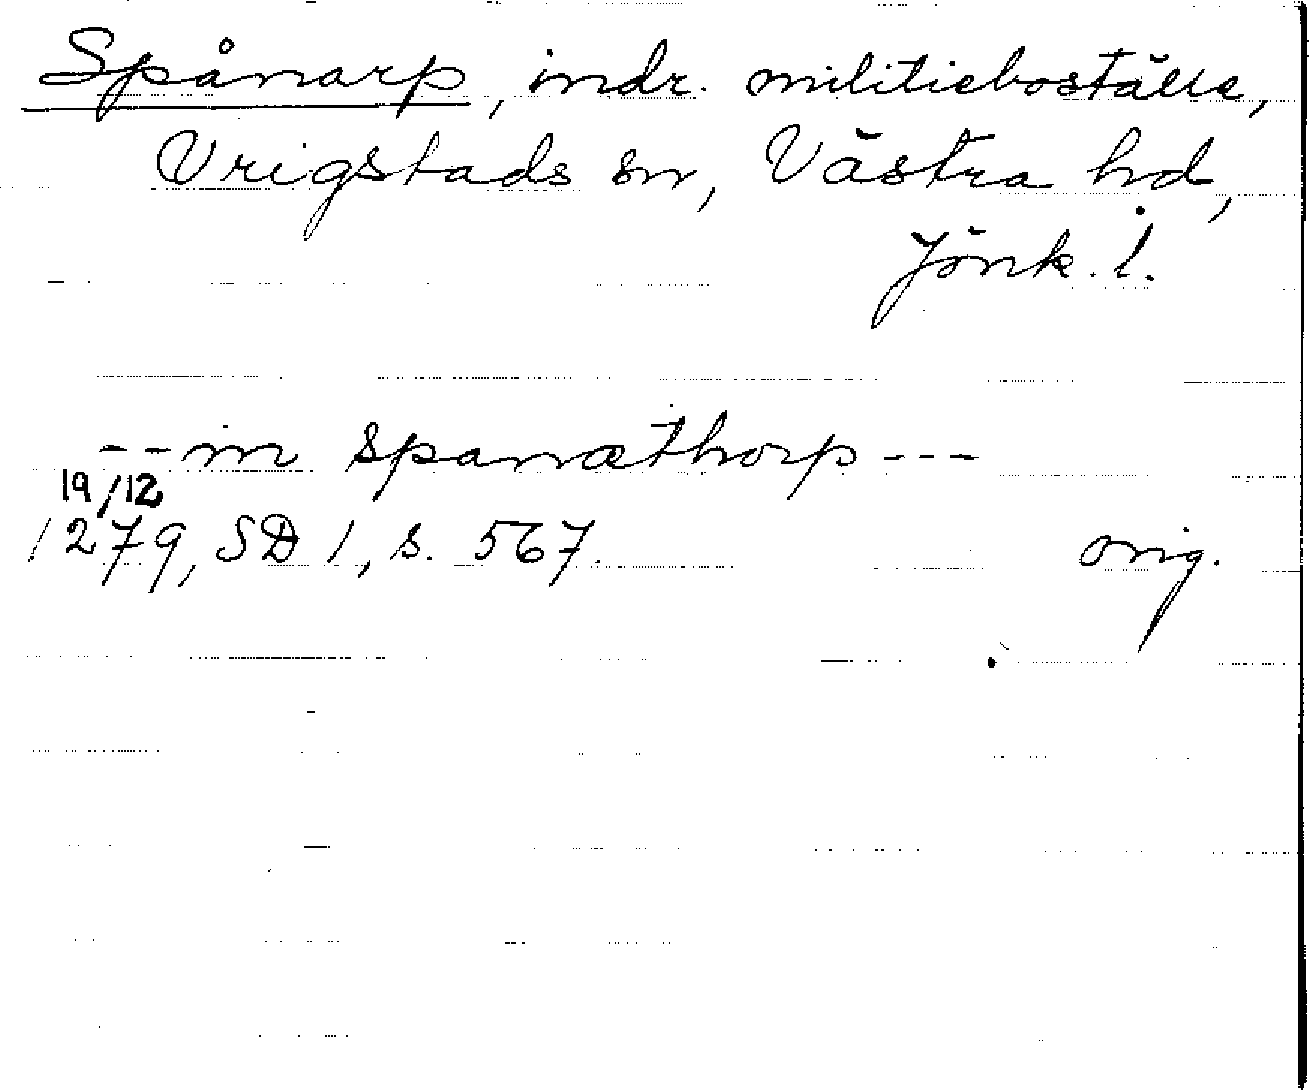 Spånarp, indr. militieboställe,
Vrigstads sn, Västra hd,
Jönk. l.
--in spanæthorp---
19/12
1279, SD 1, s. 567.
orig.